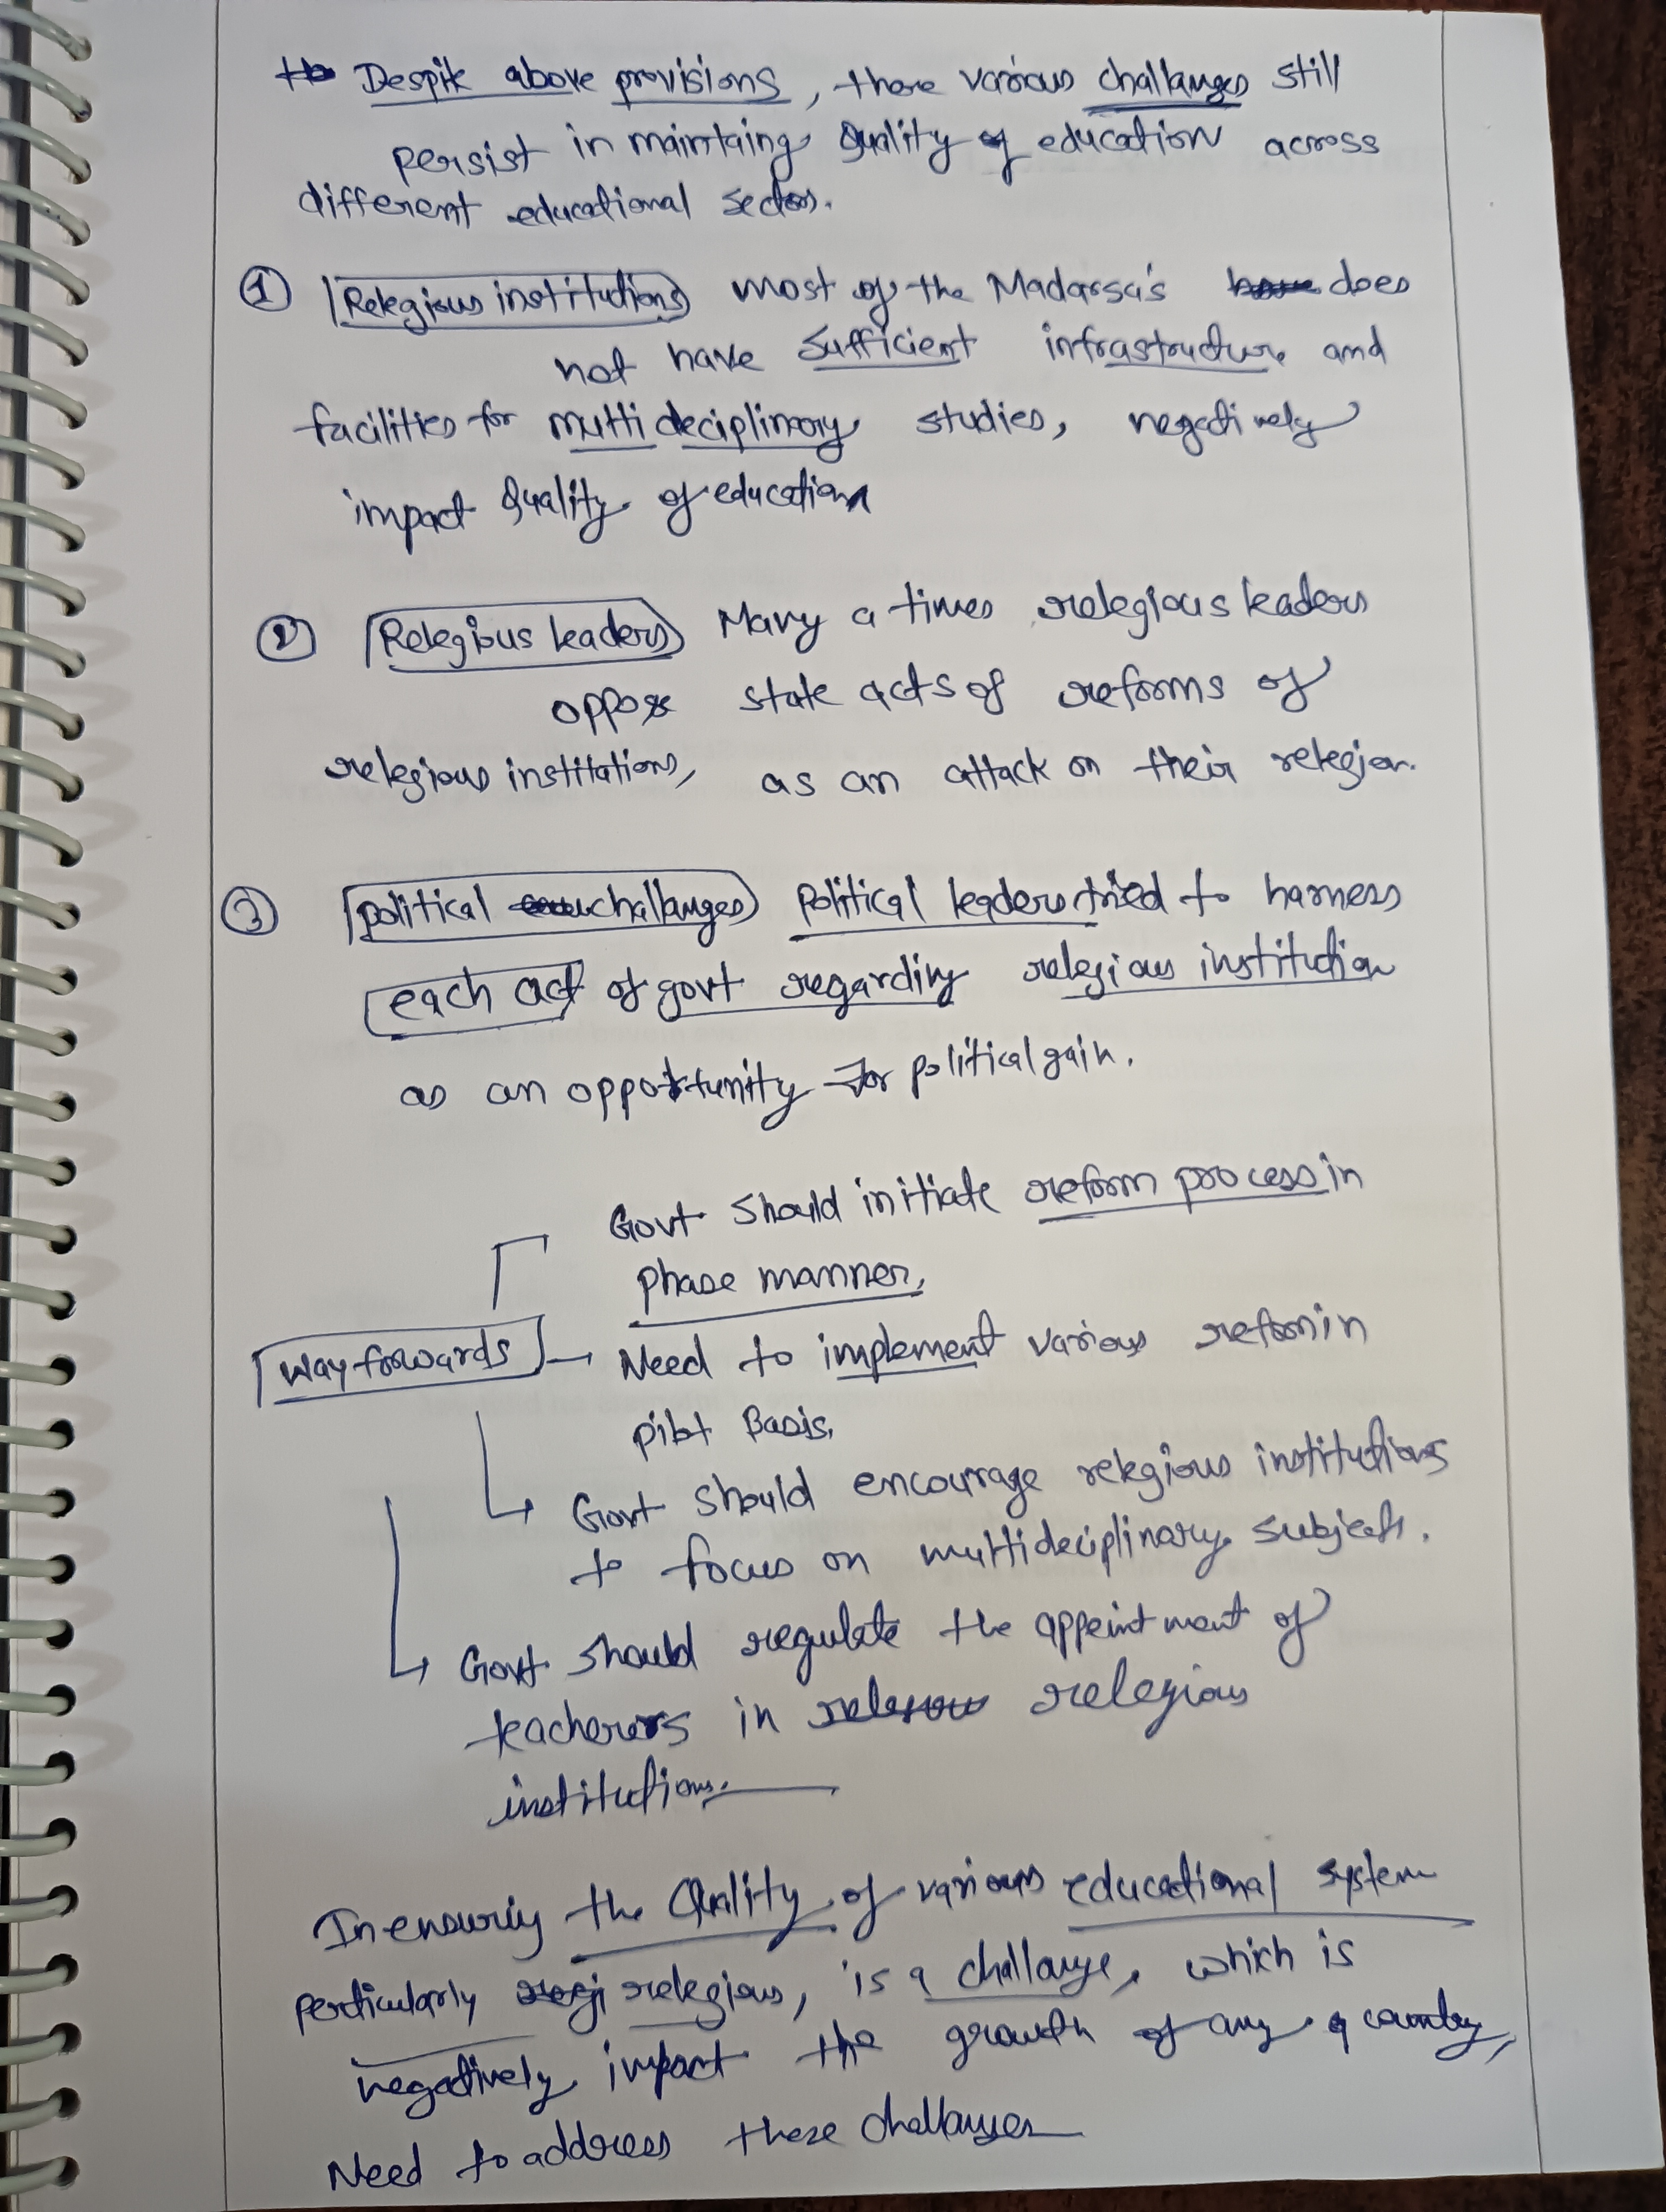 Despite above provisions, there various challanges still
persist in maintaing Quality of education across
different educational sectors.
① Relegious institutions most of the Madarsa's does
not have sufficient infrastructure and
facilities for multi deciplinary studies, negatively
impact Quality of education
② Relegious leaders Many a times relegious leaders
oppose state acts of reforms of
relegious institutions, as an attack on their relegion.
③ political challanges Political leaders tried to harness
each act of govt regarding relegious institution
as an opportunity for political gain.
Govt should initiate reform process in
phase manner,
Way forwards → Need to implement various reform in
pilot Basis.
Govt should encourage relegious institutions
to focus on multideciplinary subjects.
Govt should regulate the appointment of
teacherers in relegious
institutions.
In ensuring the Quality of various educational system
perticularly relegious, is a challange, which is
negatively impact the growth of any country,
Need to address these challanges